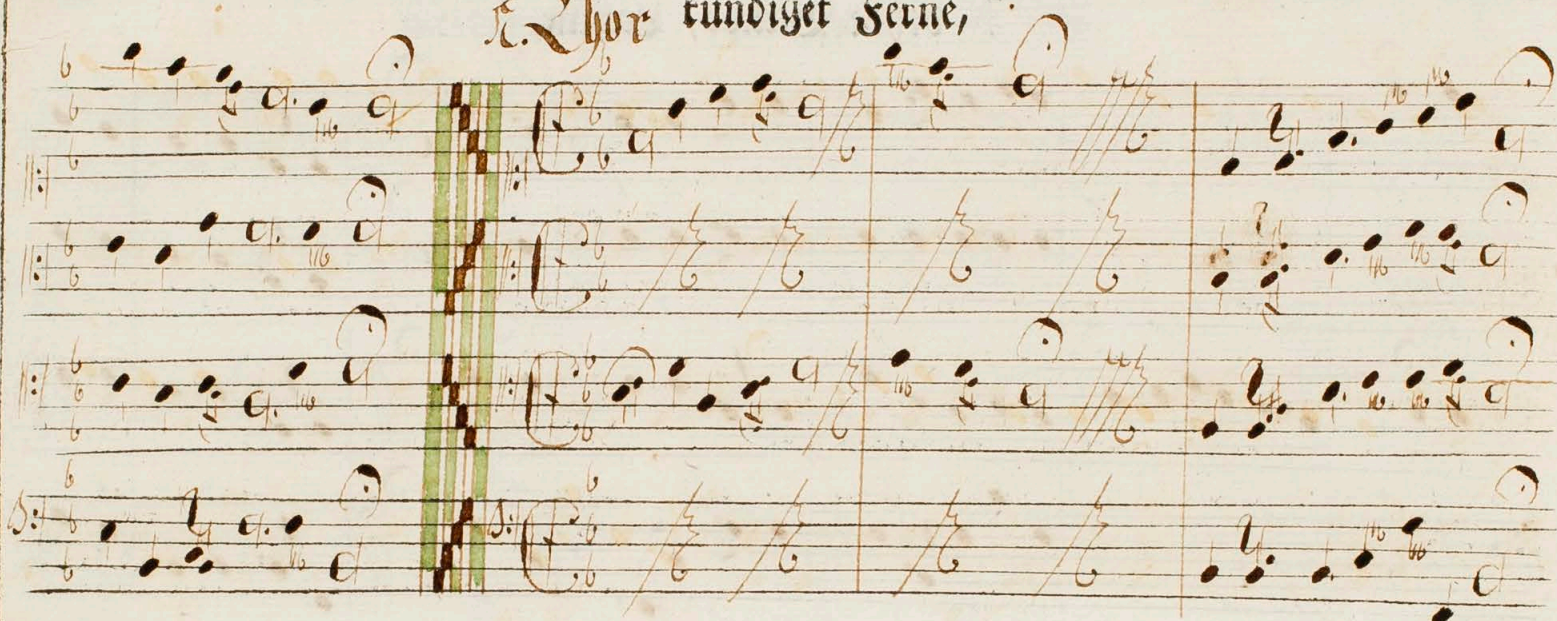 Chor kündiget Ferne,